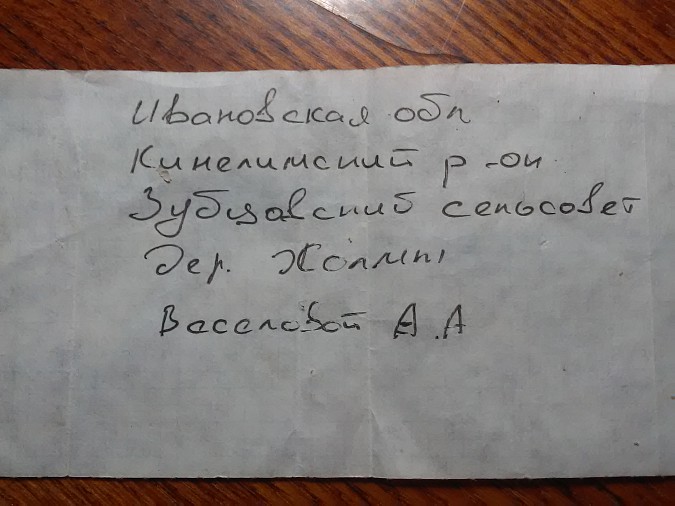 Ивановская обл
Кинелимский р-он
Зубцовский сельсовет
Дер. Холмы
Веселовой А.А